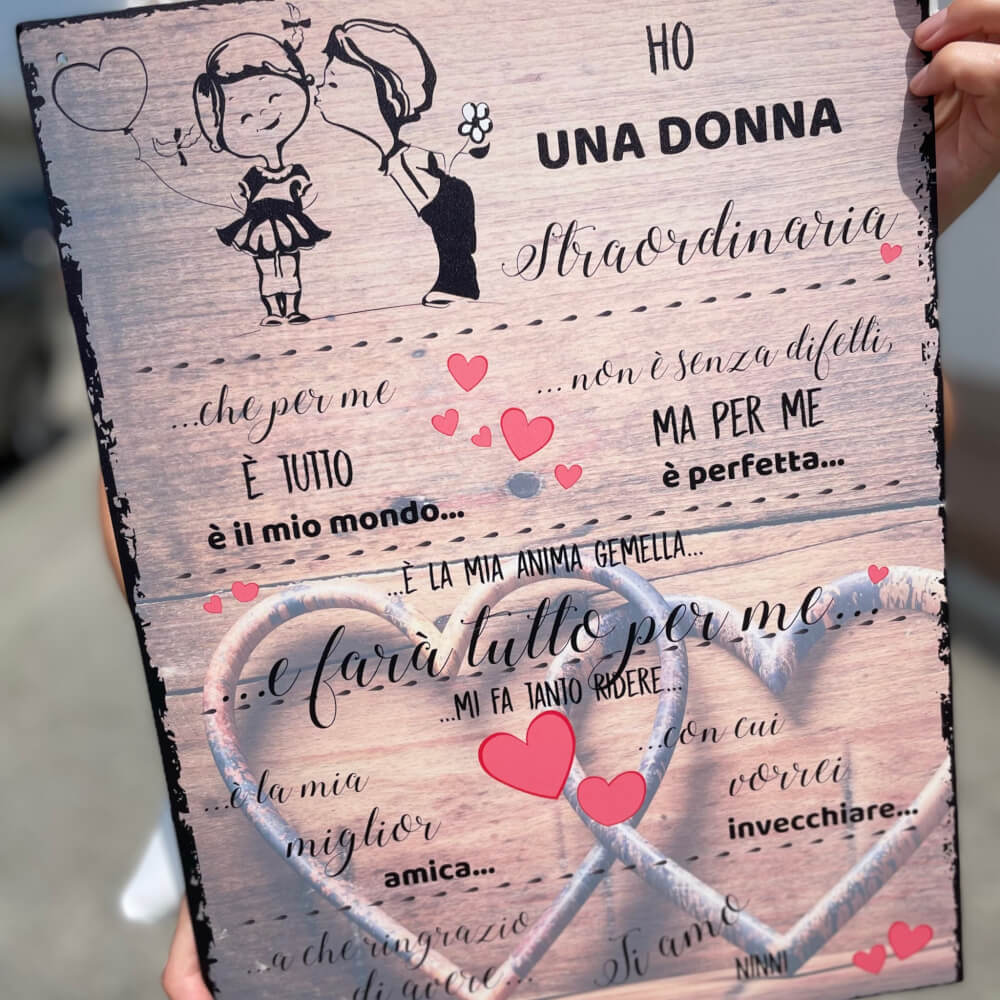 HO
UNA DONNA
Straordinaria
...che per me
È TUTTO
è il mio mondo...
...non è senza difetti,
MA PER ME
è perfetta...
...È LA MIA ANIMA GEMELLA...
...e farà tutto per me...
...MI FA TANTO RIDERE...
...è la mia
miglior
amica...
...con cui
vorrei
invecchiare...
...a che ringrazio
di avere...
Ti amo
NINNI